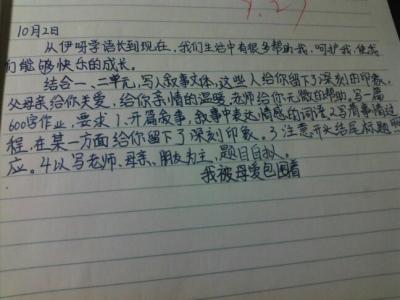 9.29
10月2日
从伊呀学语长到现在，我们生活中有很多帮助我，呵护我，使我
们能够快乐的成长。
结合一、二单元，写人叙事文体，这些人给你留下了深刻的印象。
父母亲给你关爱，给你亲情的温暖，老师给你无微的帮助。写一篇
600字作业，要求1、开篇叙事，叙事中表达情感的词语。2写清事情过
程，在某一方面给你留下了深刻印象。3注意开头结尾标题
应。4以写老师、母亲、朋友为主，题目自拟。
我被母爱包围着